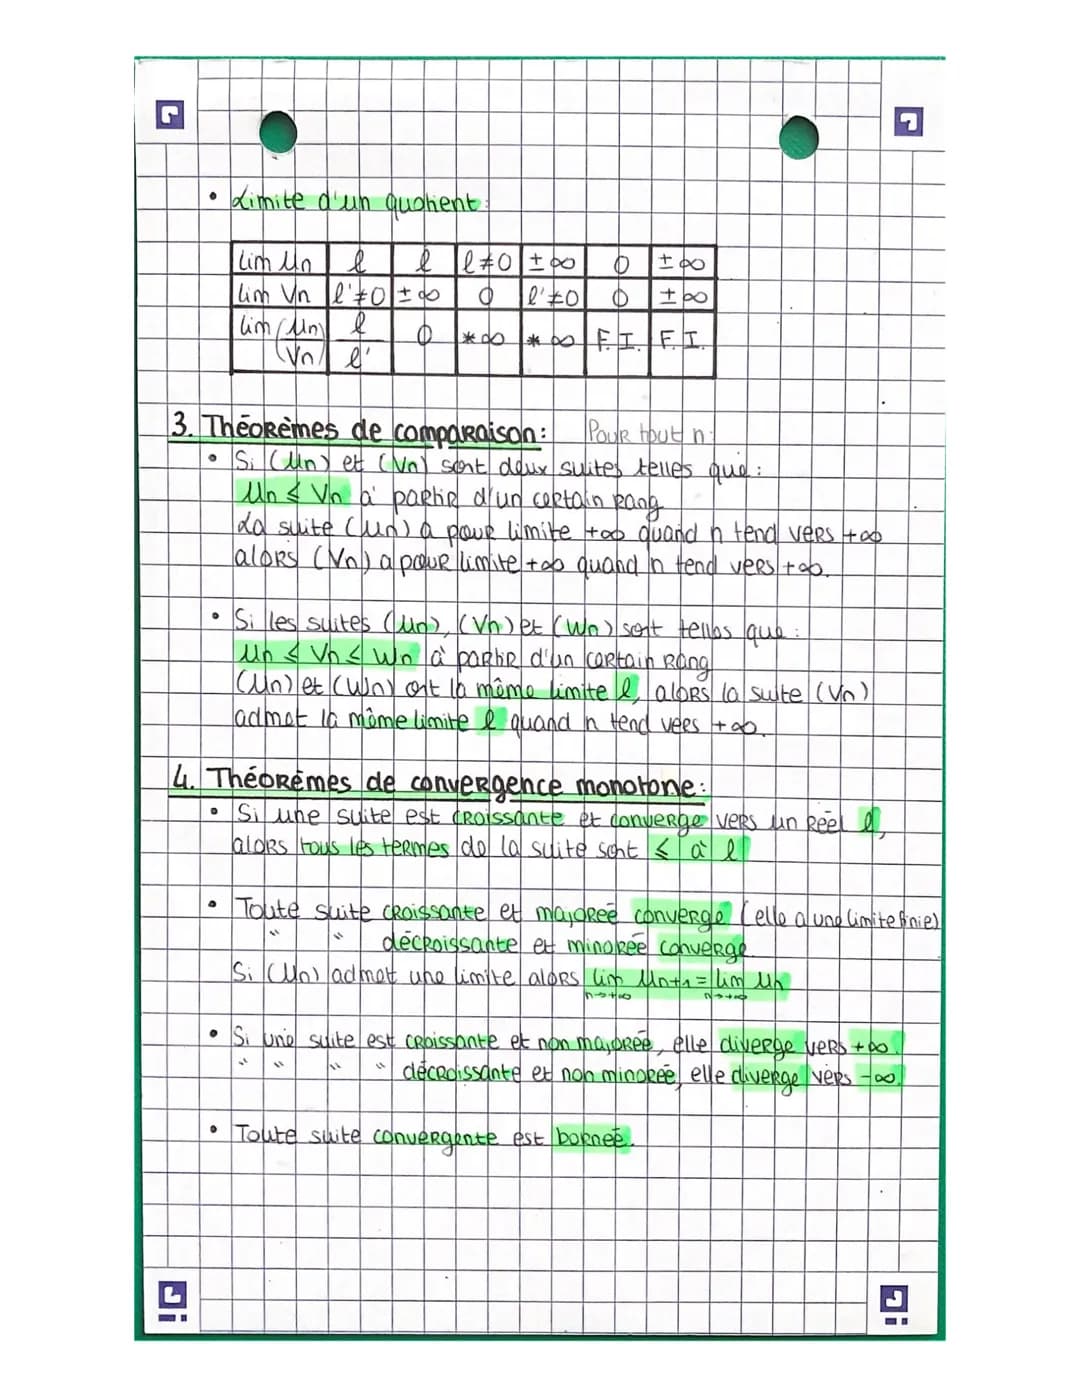 • Limite d'un quotient:
lim Un | l | l | l≠0 | ±∞ | 0 | ±∞
lim Vn | l'≠0 | ±∞ | 0 | l'≠0 | 0 | ±∞
lim (Un/Vn) | l/l' | 0 | *∞ | *∞ | F.I. | F.I.
3. Théorèmes de comparaison: Pour tout n:
• Si (Un) et (Vn) sont deux suites telles que:
Un ≤ Vn à partir d'un certain rang
La suite (Un) a pour limite +∞ quand n tend vers +∞
alors (Vn) a pour limite +∞ quand n tend vers +∞.
• Si les suites (Un), (Vn) et (Wn) sont telles que:
Un ≤ Vn ≤ Wn à partir d'un certain rang
(Un) et (Wn) ont la même limite l, alors la suite (Vn)
admet la même limite l quand n tend vers +∞.
4. Théorèmes de convergence monotone:
• Si une suite est croissante et converge vers un réel l,
alors tous les termes de la suite sont ≤ à l
• Toute suite croissante et majorée converge (elle a une limite finie)
" " décroissante et minorée converge.
Si (Un) admet une limite alors lim Un+1 = lim Un
n→+∞ n→+∞
• Si une suite est croissante et non majorée, elle diverge vers +∞.
" " " " décroissante et non minorée, elle diverge vers -∞.
• Toute suite convergente est bornée.